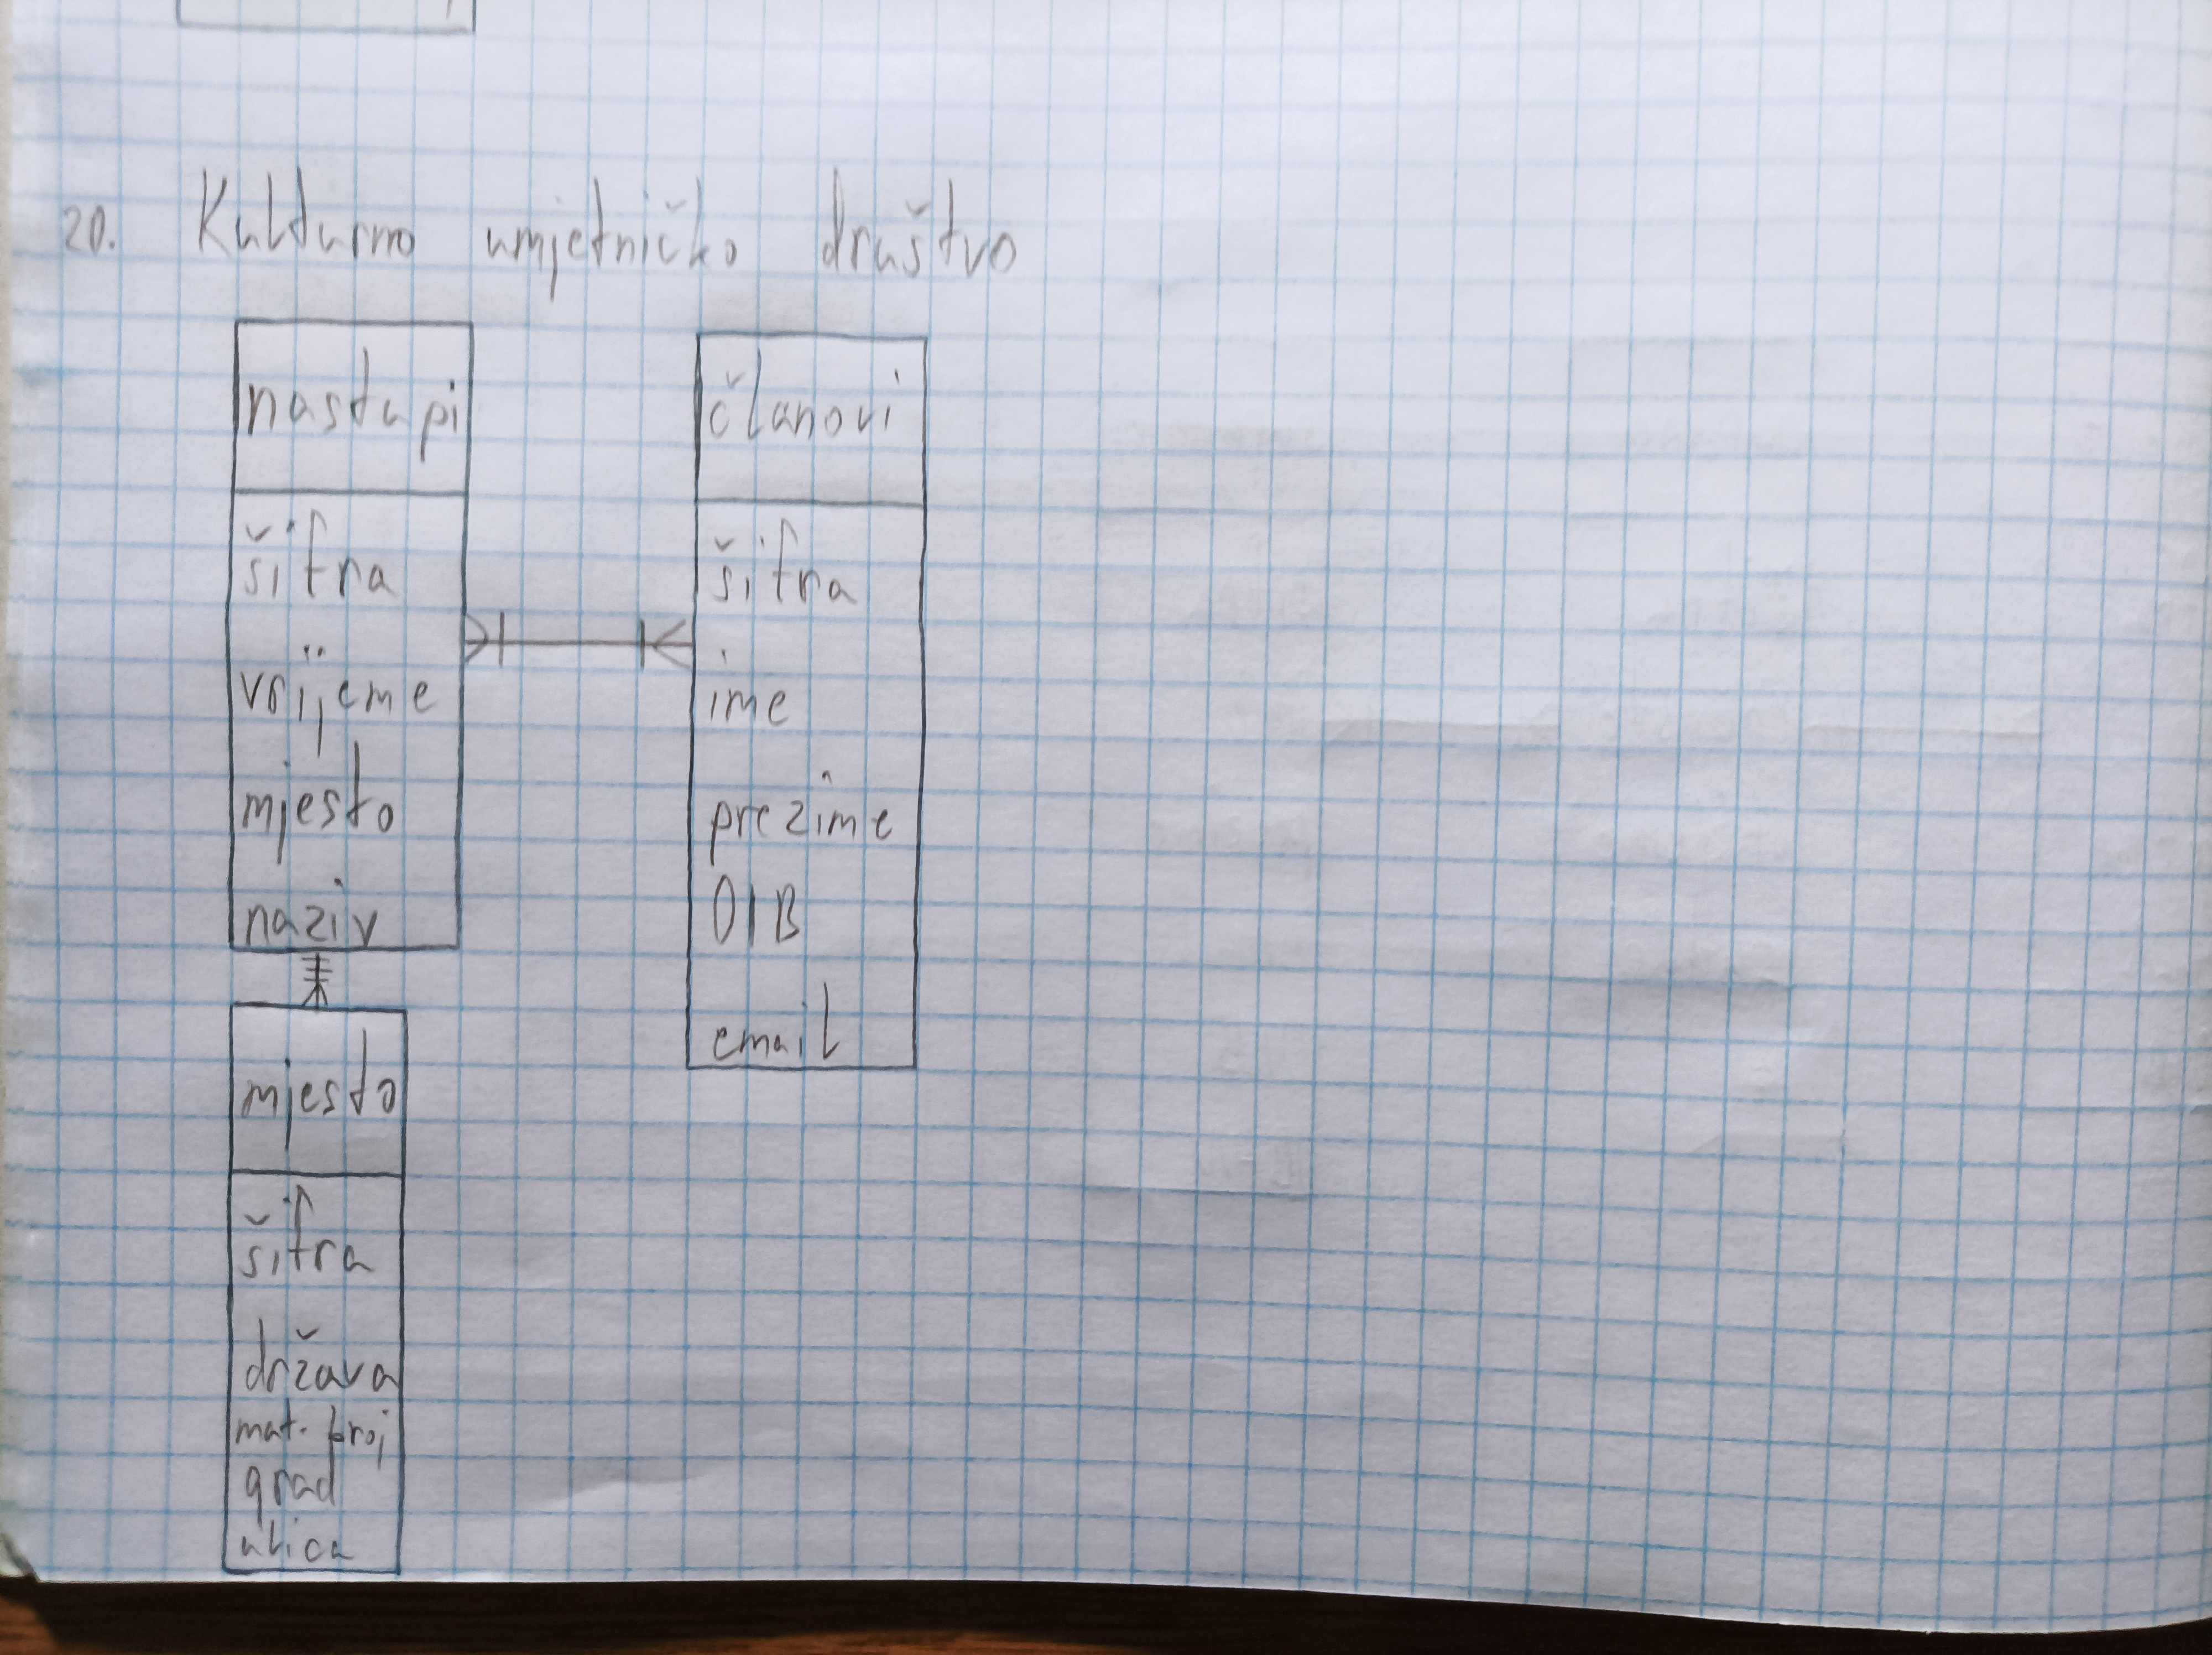 20. Kulturno umjetničko društvo
nastupi
šifra
vrijeme
mjesto
naziv
članovi
šifra
ime
prezime
OIB
email
mjesto
šifra
država
mat. broj
grad
ulica